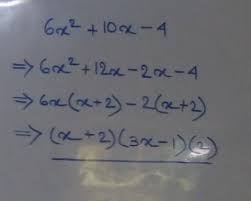 6x² + 10x - 4
⇒ 6x² + 12x - 2x - 4
⇒ 6x(x+2) - 2(x+2)
⇒ (x+2)(3x-1)(2)